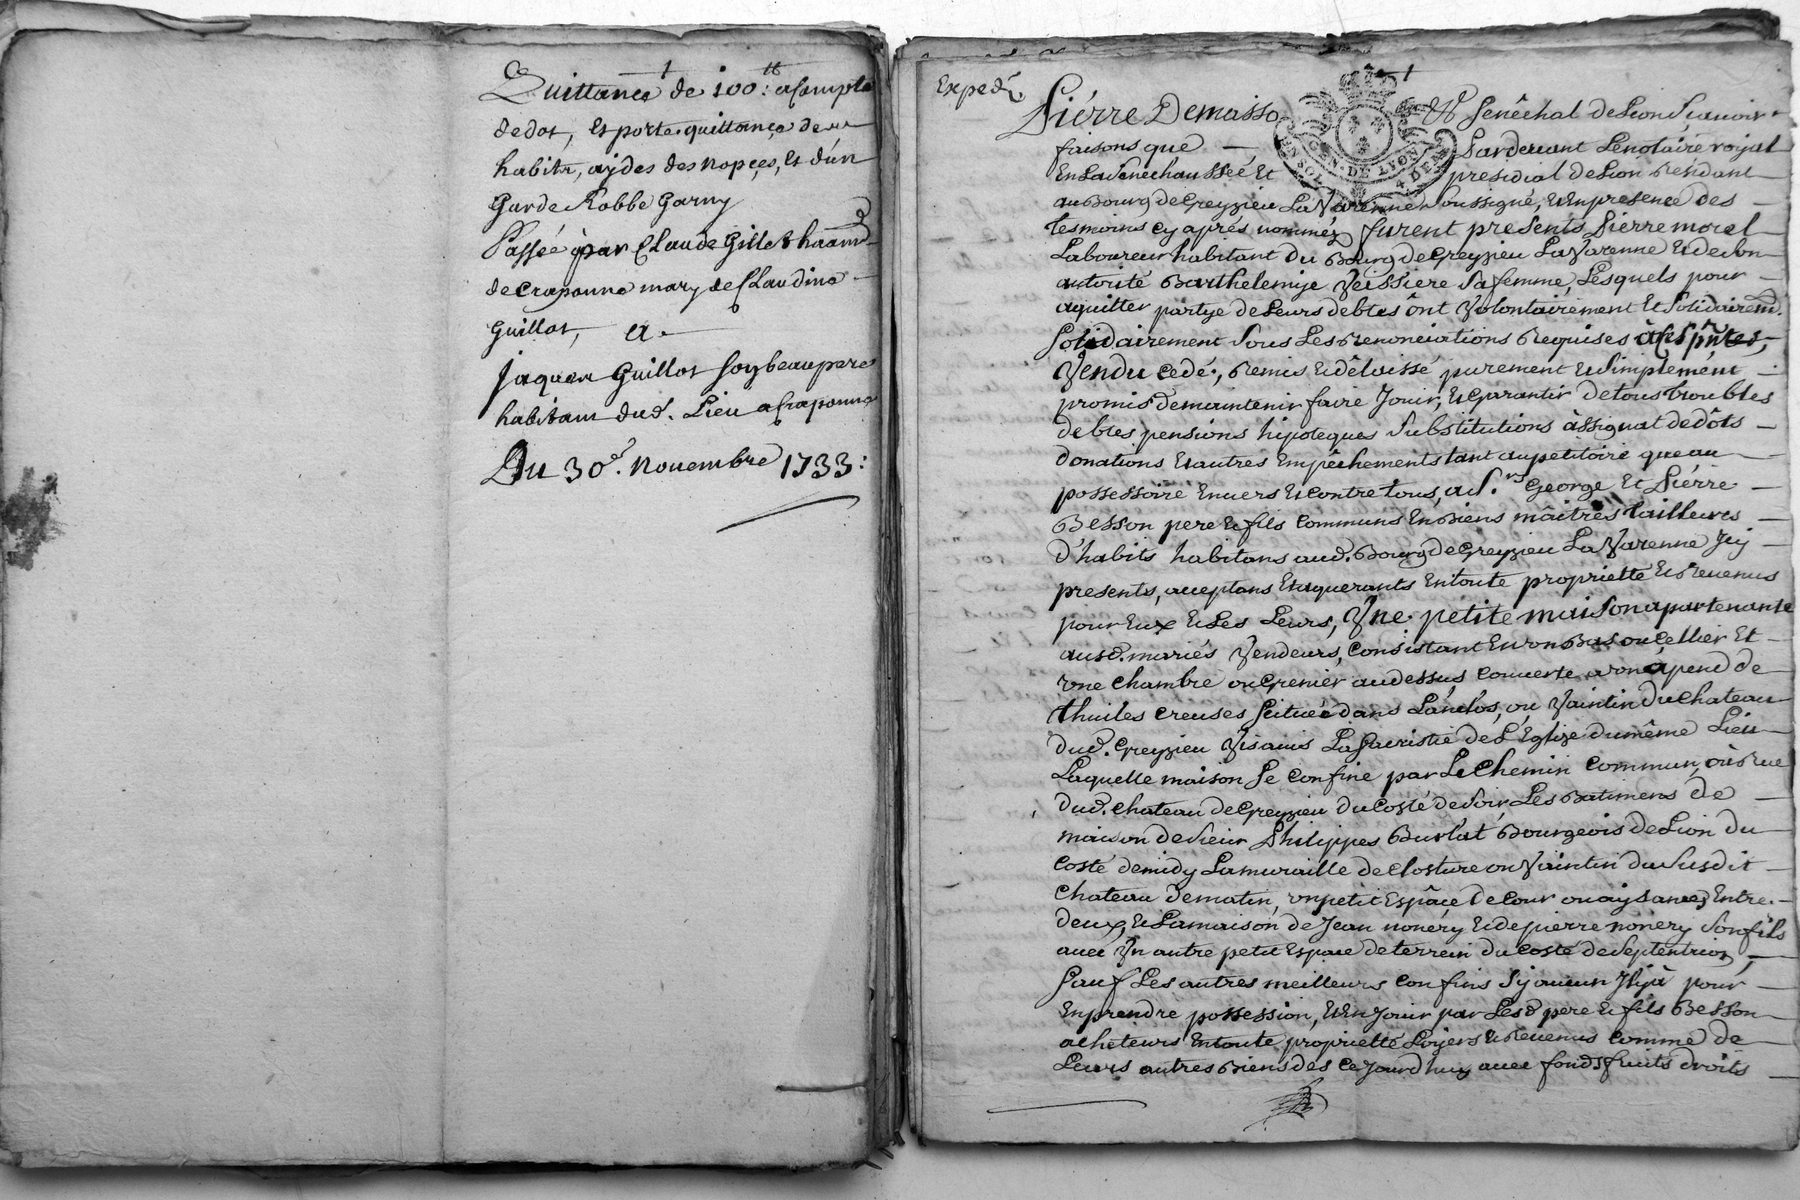 Quittance de 100:tt acompte
de dot, et porte quittance de
habitz, aydes des nopçes, et d'un
Garde Robbe Garny
Passée par Claude Gillet
de Craponne mary de Claudine
Guillot, a
Jaques Guillot son beau pere
habitant dud. Lieu a Craponne
Du 30e. Novembre 1733:
Exped.
Pierre Demasso Senêchal de Lion Sçavoir
faisons que pardevant Le notaire royal
En La Senêchaussée Et presidial de Lion Residant
au Bourg de Greyzieu La Varenne Soussigné, Et En presence des
tesmoins cy aprés nomméz furent presents Pierre morel
Laboureur habitant du Bourg de Greyzieu La Varenne Et de son
autorité Barthelemye Veissiere Sa femme, Lesquels pour
aquitter partye de Leurs debtes ônt Volontairement Et Solidairemt.
Solidairement Sous Les Renonciations Requises à Ces pntes,
Vendu cedé, Remis Et dêlaissé purement Et Simplement
promis de maintenir faire Jouir, Et Garantir de tous troubles
debtes pensions hipoteques Substitutions âssignat de dôts
donations Et autres Empêchements tant au petitoire que au
possessoire Envers Et contre tous, a Srs George Et Pierre
Besson pere Et fils communs En Biens maîtres tailleurs
d'habits habitans aud. Bourg de Greyzieu La Varenne Jcy
presents, aceptans Et aquerants En toute proprietté Et Revenus
pour Eux Et Les Leurs, Vne petite maison apartenante
ausd. mariés Vendeurs, consistant En vn Bas ou cellier Et
vne chambre ou Grenier au dessus couverte a vn apend de
thuiles creuses Scituée dans L'anclos, ou Vaintin du chateau
dud. Greyzieu Visavis La Sacristie de L'Eglize du même Lieu
Laquelle maison Se confine par Le Chemin commun, ou Rue
dud. chateau de Greyzieu du costé de Soir, Les Batimens de
maison de Sieur Philippes Burlat Bourgeois de Lion du
costé de midy La muraille de closture ou Vaintin du Susdit
chateau de matin, vn petit Espâce de cour ou aysances Entre
deux, Et La maison de Jean nonery Et de pierre nonery Son fils
avec Vn autre petit Espace de terrein du costé de Septentrion,
Sauf Les autres meilleurs confins Sy aucun Jl y à pour
En prendre possession, Et En Jouir par Lesd pere Et fils Besson
acheteurs En toute proprietté Loyers Et Revenus comme de
Leurs autres Biens des ce Jourd'huy avec fonds fruits droits